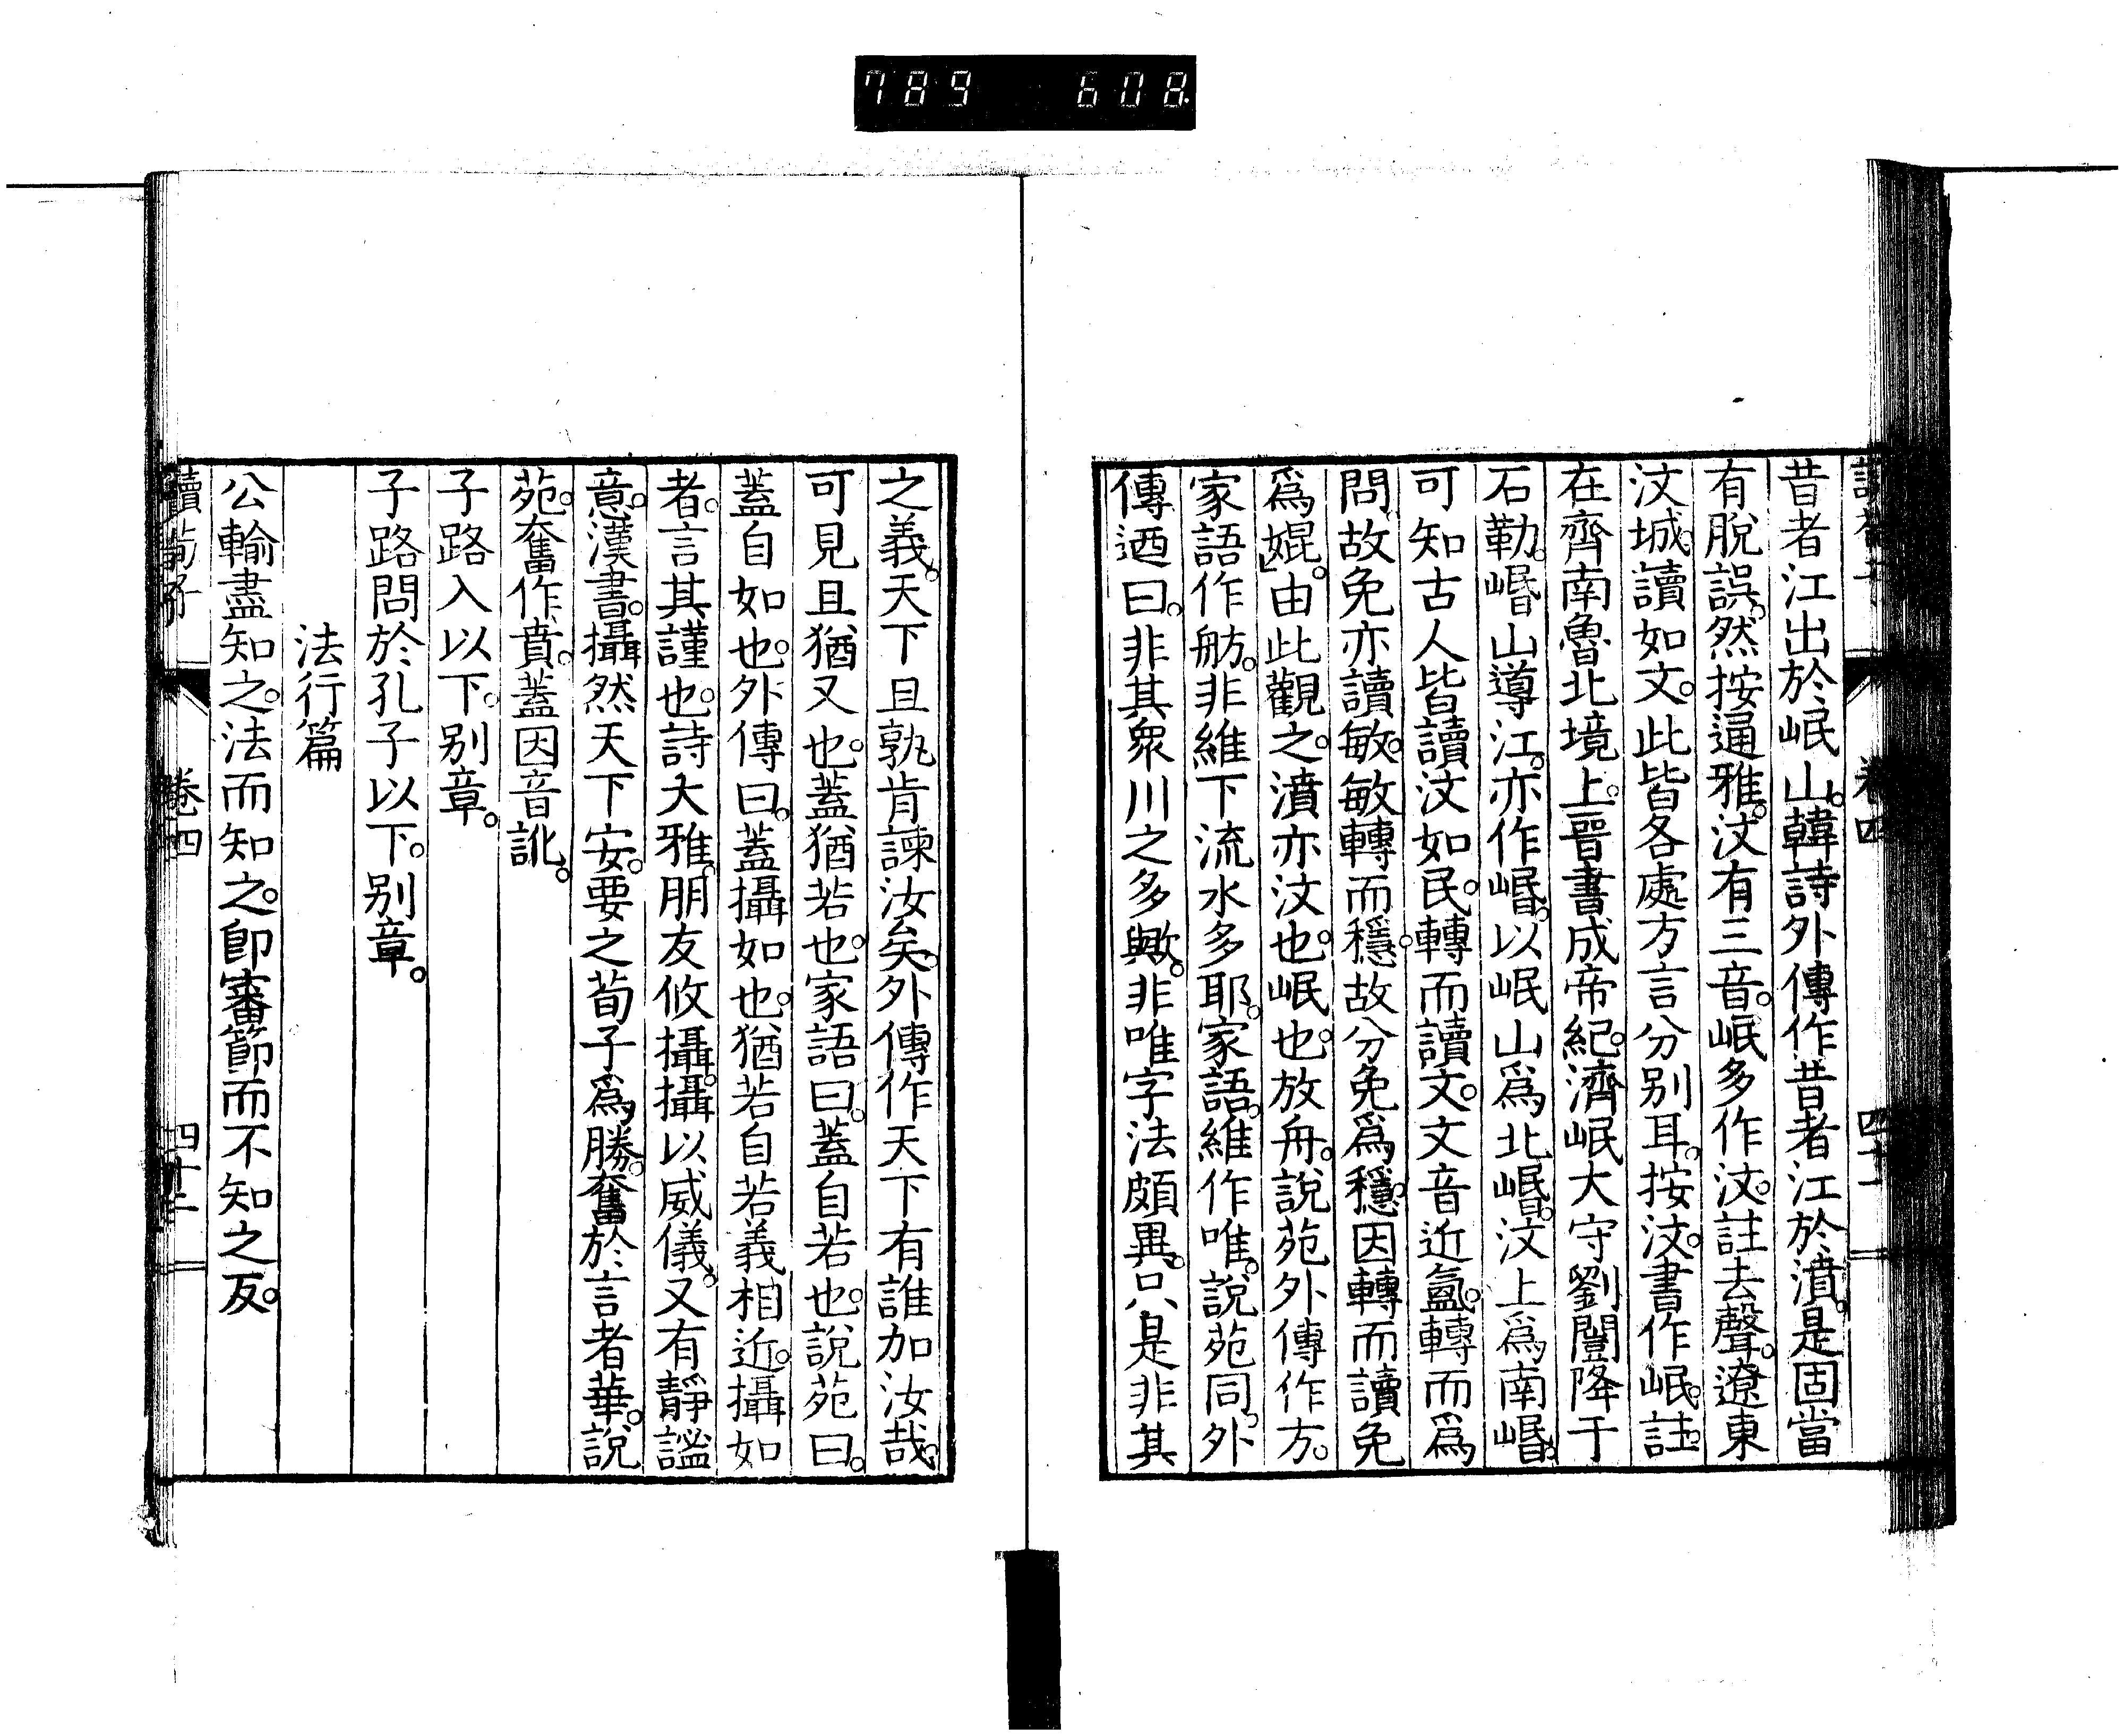 789 608
昔者江出於岷山。韓詩外傳作昔者江於濆。是固當
有脫誤。然按通雅。汶有三音。岷多作汶。註去聲。遼東
汶城。讀如文。此皆各處方言分別耳。按汶。書作岷。註。
在齊南魯北境上。晋書成帝紀。濟岷大守劉闓降于
石勒。㟭山導江。亦作㟭。以岷山爲北㟭。汶上爲南㟭。
可知古人皆讀汶如民。轉而讀文。文音近氳。轉而爲
問故免亦讀敏。敏轉而穩。故分免爲穩。因轉而讀免
爲娓。由此觀之。濆亦汶也。岷也。放舟。說苑外傳作方。
家語作舫。非維下流水多耶。家語。維作唯。說苑同。外
傳廼曰。非其衆川之多歟。非唯字法頗異。只是非其
之義。天下且孰肯諫汝矣。外傳作天下有誰加汝哉。
可見且猶又也。蓋猶若也。家語曰。蓋自若也。說苑曰。
蓋自如也。外傳曰。蓋攝如也。猶若自若義相近。攝如
者。言其謹也。詩大雅。朋友攸攝。攝以威儀。又有靜謐
意。漢書。攝然天下安。要之荀子爲勝。奮於言者華。說
苑。奮作賁。蓋因音訛。
子路入以下。別章。
子路問於孔子以下。別章。
法行篇
公輸盡知之。法而知之。卽審節而不知之反。
讀荀子 卷四 四十二